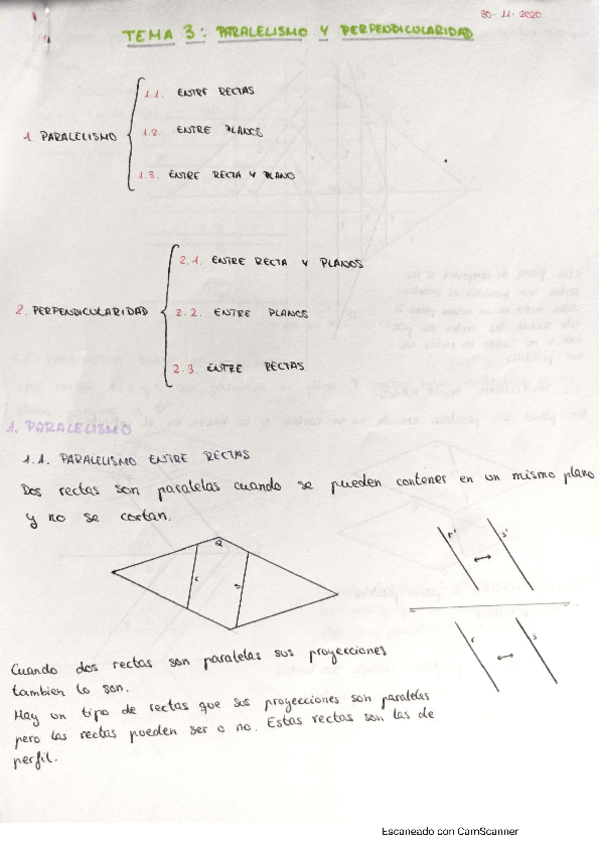 30-11-2020
TEMA 3: PARALELISMO Y PERPENDICULARIDAD
1.1. ENTRE RECTAS
1. PARALELISMO
1.2. ENTRE PLANOS
1.3. ENTRE RECTA Y PLANO
2.1. ENTRE RECTA Y PLANOS
2. PERPENDICULARIDAD
2.2. ENTRE PLANOS
2.3 ENTRE RECTAS
1. PARALELISMO
1.1. PARALELISMO ENTRE RECTAS
Dos rectas son paralelas cuando se pueden contener en un mismo plano
y no se cortan.
Q
r s
r' s'
r s
Cuando dos rectas son paralelas sus proyecciones
tambien lo son.
Hay un tipo de rectas que sus proyecciones son paralelas
pero las rectas pueden ser o no. Estas rectas son las de
perfil.
Escaneado con CamScanner